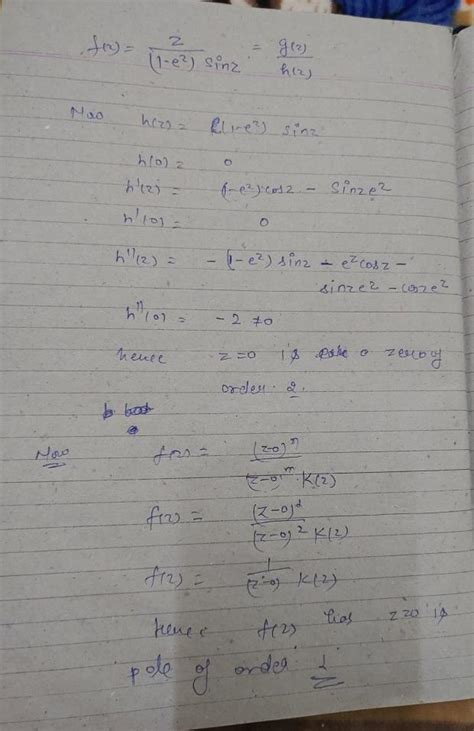 f(z) = z / (1-e^z) sinz = g(z) / h(z)
Now h(z) = (1-e^z) sinz
h(0) = 0
h'(z) = (1-e^z) cosz - sinz e^z
h'(0) = 0
h''(z) = -(1-e^z) sinz - e^z cosz -
sinz e^z - cosz e^z
h''(0) = -2 ≠ 0
hence z=0 is a zero of
order 2.
Now f(z) = (z-0)^n / (z-0)^m . K(z)
f(z) = (z-0)^1 / (z-0)^2 K(z)
f(z) = 1 / (z-0) K(z)
hence f(z) has z=0 is
pole of order 1